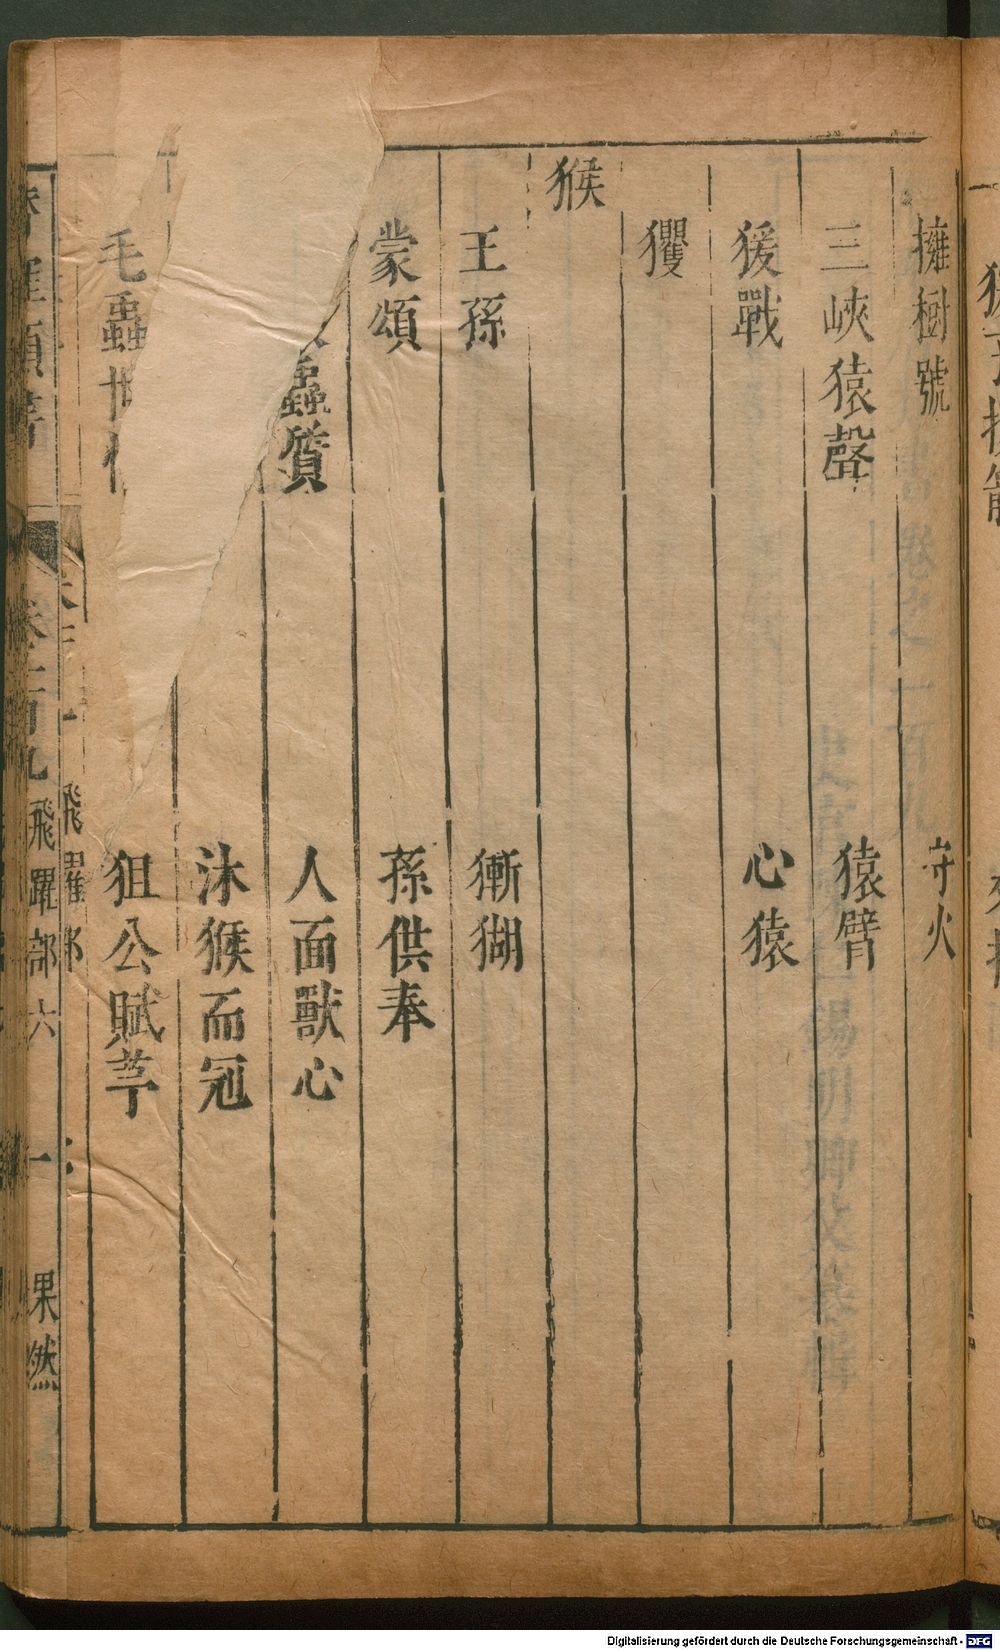 擁樹號 守火
三峽猿聲 猿臂
猨戰 心猿
玃
猴
王孫 獑猢
蒙頌 孫供奉
蟲質 人面獸心
沐猴而冠
毛蟲 狙公賦芧
類書 卷一百九 飛躍部六 一 果然
飛躍部
Digitalisierung gefördert durch die Deutsche Forschungsgemeinschaft - DFG